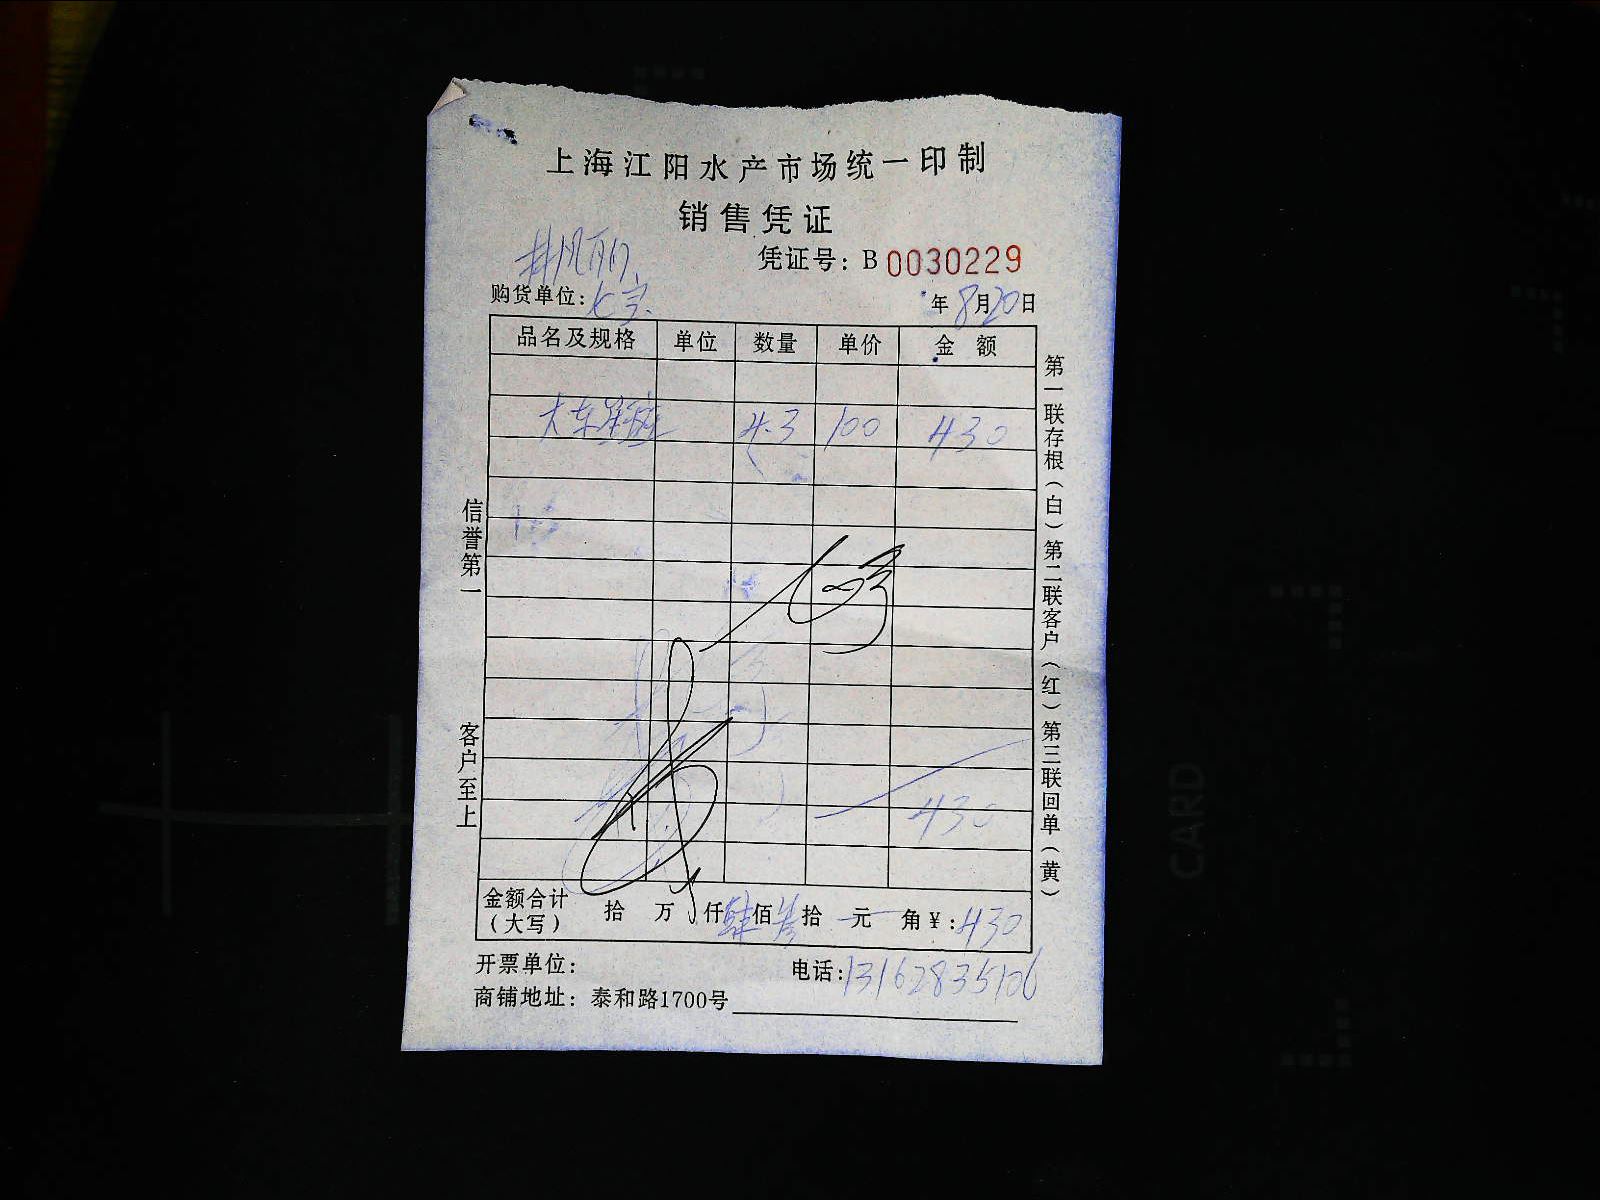 上海江阳水产市场统一印制
销售凭证
凭证号: B 0030229
购货单位:
年 8月20日
品名及规格 单位 数量 单价 金额
大东星斑 4.3 100 430
430
金额合计(大写) 拾 万 仟 肆佰 叁拾 元 角 ¥: 430
开票单位:
电话: 13162835106
商铺地址: 泰和路1700号
信誉第一
客户至上
第一联存根(白) 第二联客户(红) 第三联回单(黄)
CARD